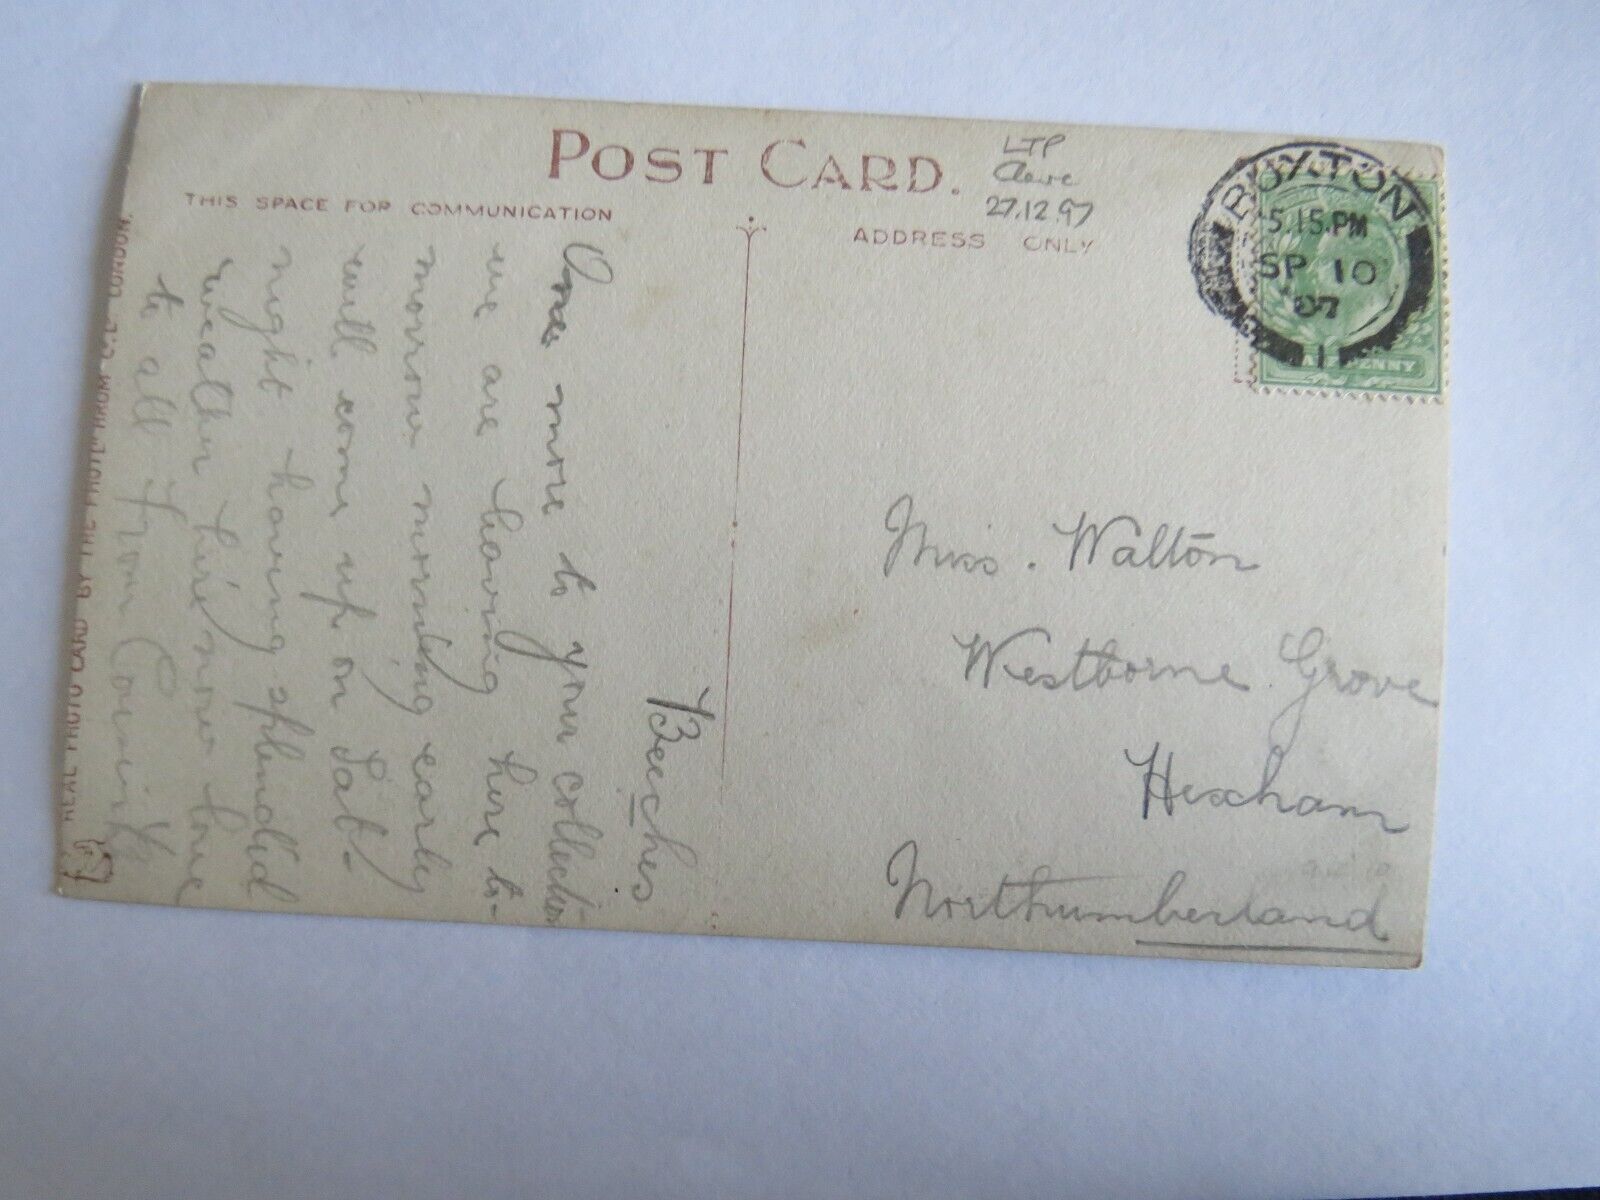 POST CARD.
THIS SPACE FOR COMMUNICATION
ADDRESS ONLY
LTP
27.12.97
BUXTON
5.15.PM
SP 10
07
1
HALFPENNY
Miss. Walton
Westborne Grove
Hexham
Northumberland
Beeches
One more to your collection
we are leaving here to-
morrow morning early
will come up on Sat-
night having splendid
weather here now love
to all from Connie
REAL PHOTO CARD BY THE LONDON.